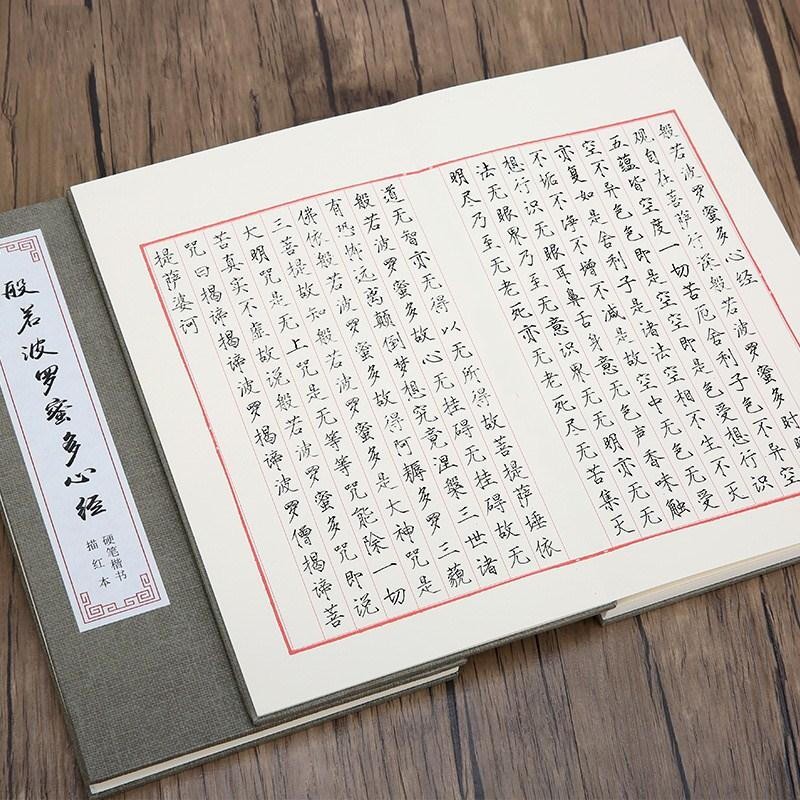 般若波罗蜜多心经
观自在菩萨行深般若波罗蜜多时照
五蕴皆空度一切苦厄舍利子色不异空
空不异色色即是空空即是色受想行识
亦复如是舍利子是诸法空相不生不灭
不垢不净不增不减是故空中无色无受
想行识无眼耳鼻舌身意无色声香味触
法无眼界乃至无意识界无无明亦无无
明尽乃至无老死亦无老死尽无苦集灭
道无智亦无得以无所得故菩提萨埵依
般若波罗蜜多故心无挂碍无挂碍故无
有恐怖远离颠倒梦想究竟涅槃三世诸
佛依般若波罗蜜多故得阿耨多罗三藐
三菩提故知般若波罗蜜多是大神咒是
大明咒是无上咒是无等等咒能除一切
苦真实不虚故说般若波罗蜜多咒即说
咒曰揭谛揭谛波罗揭谛波罗僧揭谛菩
提萨婆诃
般若波罗蜜多心经
硬笔楷书
描红本